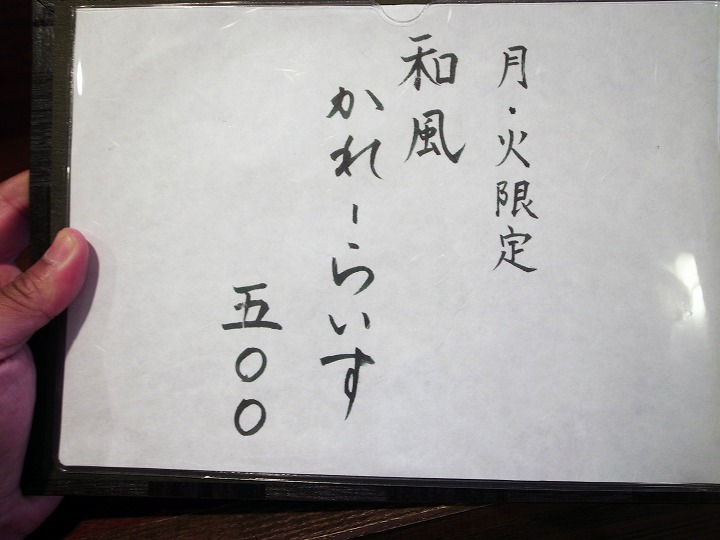 月・火限定
和風
かれーらいす
五〇〇